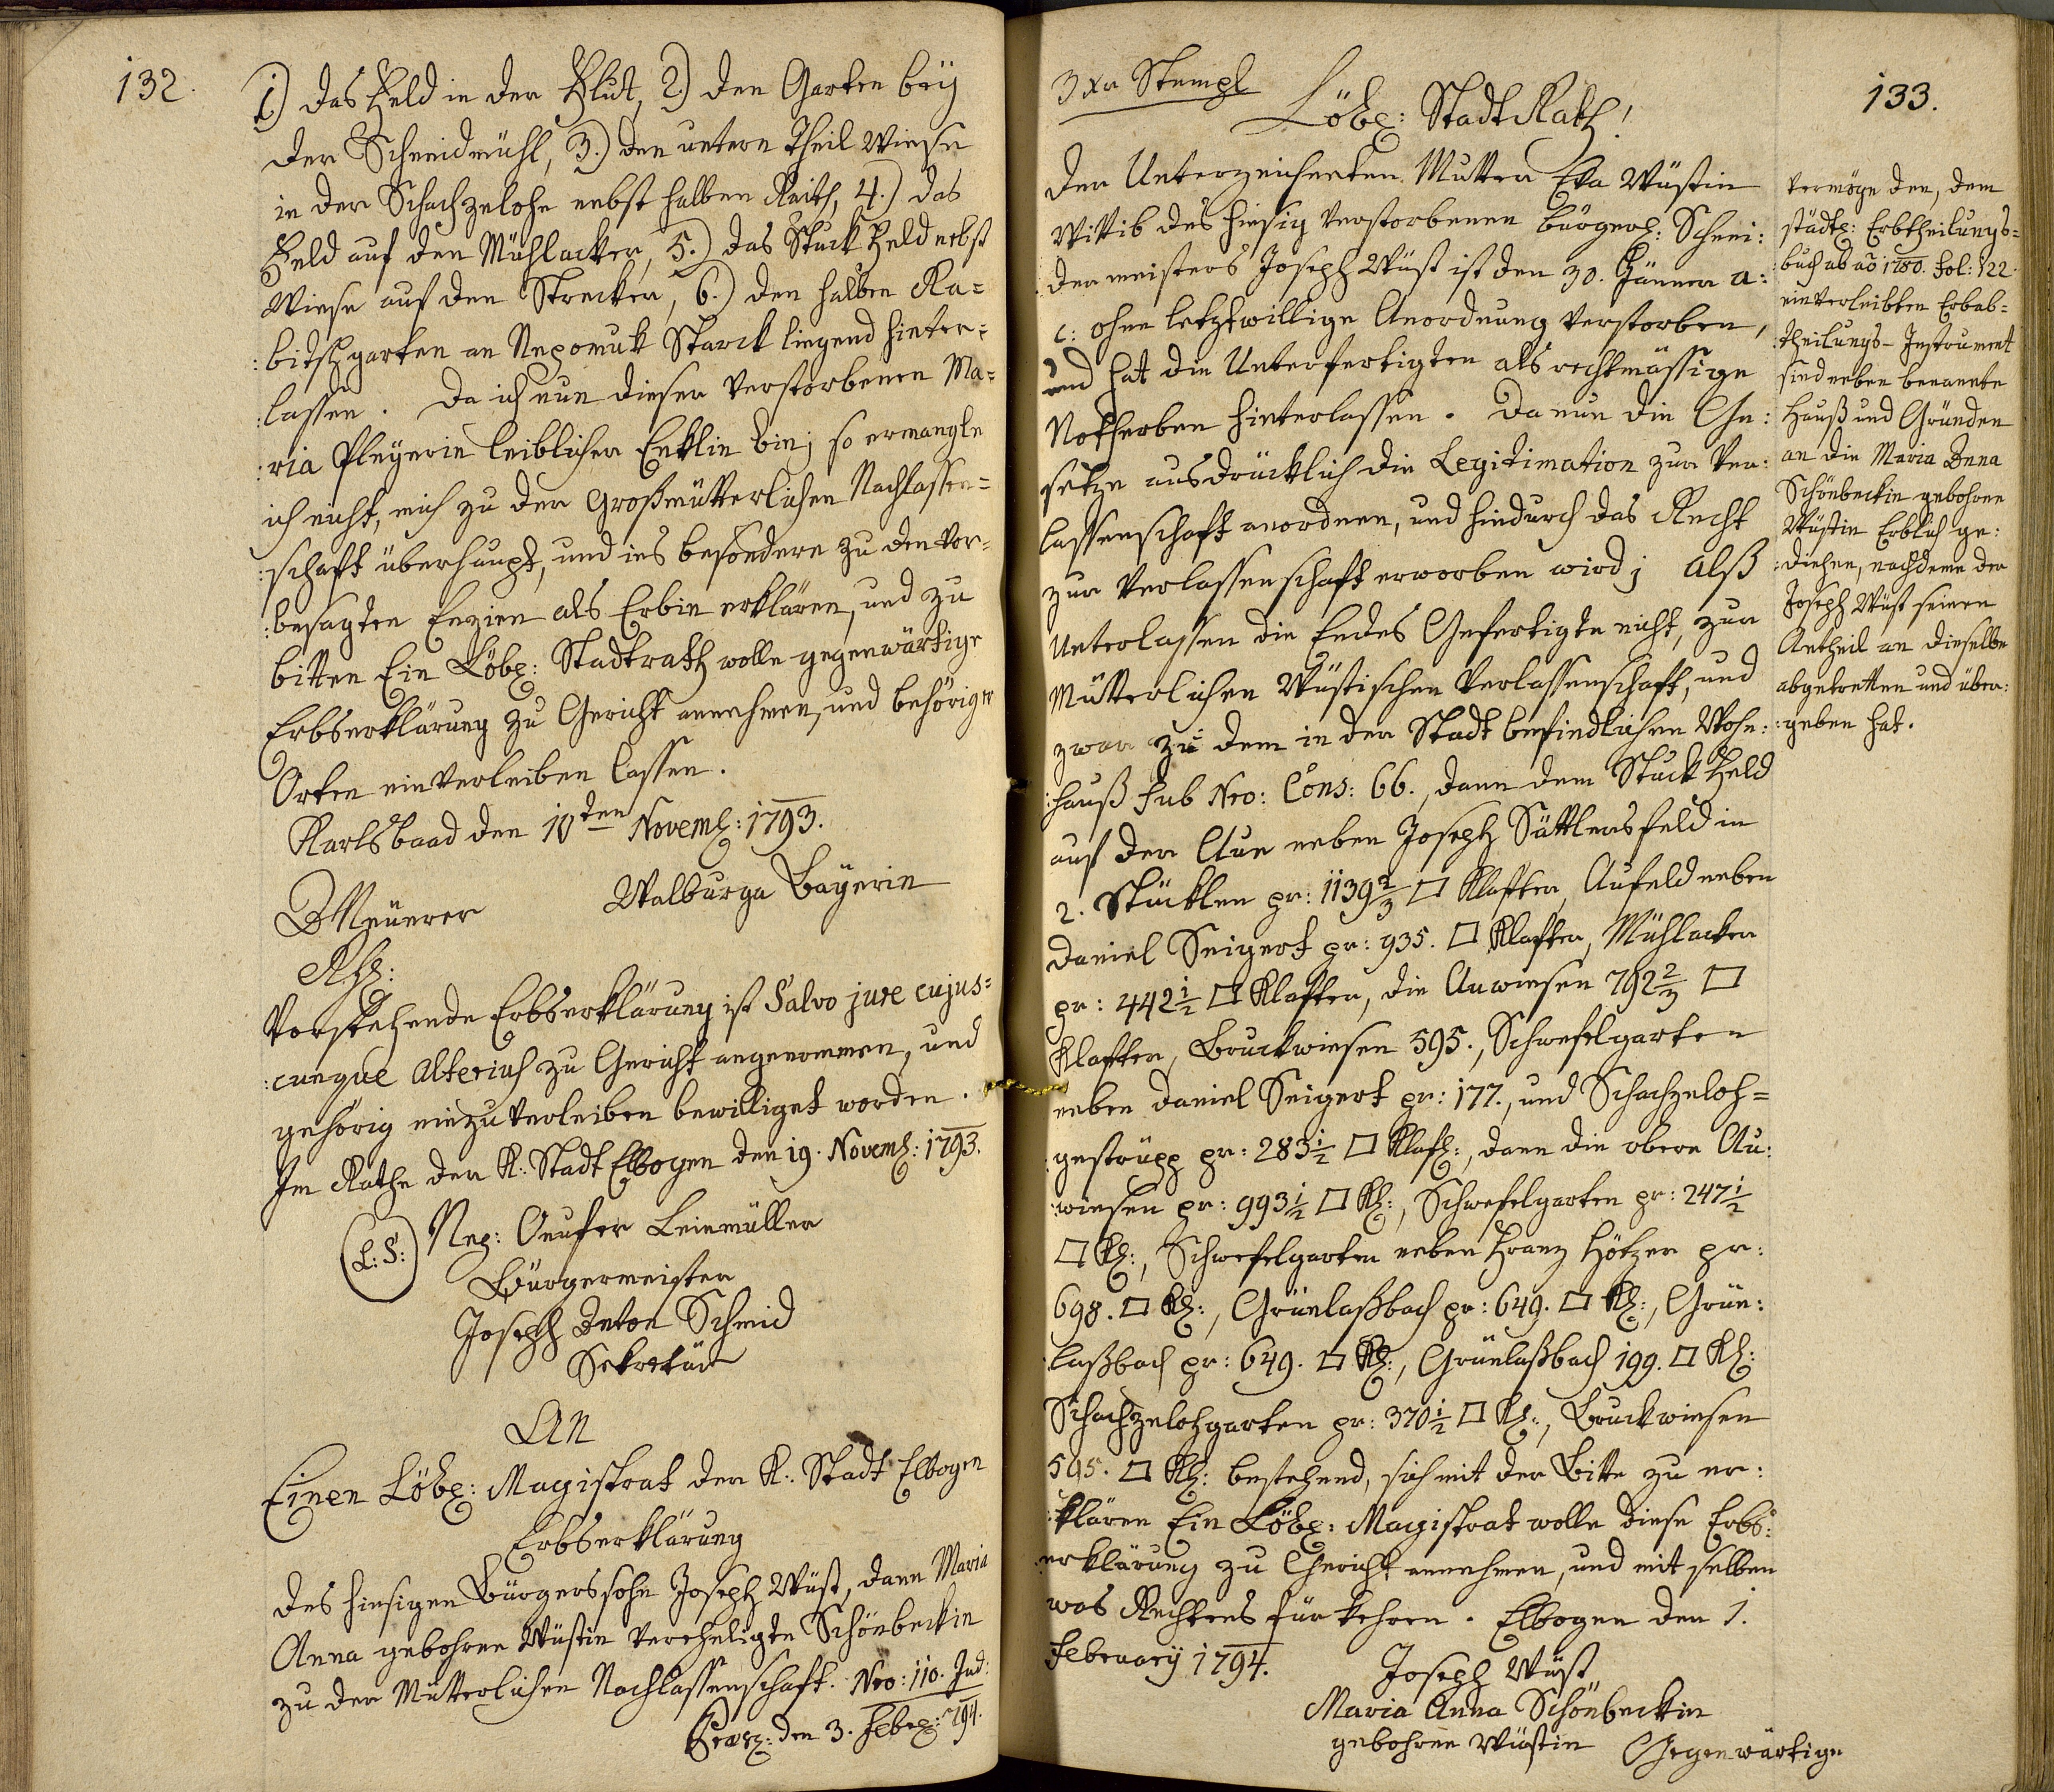 132.
1.) das Feld in der Flut, 2.) den Garten beÿ
der Schneidmühl, 3.) den untern Theil Wiese
in der Schachzelohe nebst halben Raith, 4.) das
Feld auf den Mühlacker, 5.) das Stuck Feld nebst
Wiese auf den Strecker, 6.) den halben Ra=
:bitschgarten an Nepomuk Starck liegend hinter=
:lassen. Da ich nun dieser verstorbenen Ma=
:ria Pleÿerin leiblicher Enklin bin; so ermangle
ich nicht, mich zu der Großmütterlichen Nachlassen=
:schaft überhaupt, und ins besondere zu den vor=
:besagten Enzien als Erbin erklären, und zu
bitten Ein Löbl: Stadtrath wolle gegenwärtige
Erbserklärung zu Gericht annehmen, und behörigen
Orten einverleiben lassen.
Karlsbaad den 10ten Novemb: 1793.
Walburga Baÿerin
Vorstehende Erbserklärung ist Salvo jure cujus=
:cunque alterius zu Gericht angenommen, und
gehörig einzuverleiben bewilliget worden.
Im Rathe der K: Stadt Elbogen den 19. Novemb: 1793.
(L: S:) Nep: Onufer Leinmüller
Bürgermeister
Joseph Anton Schmid
Sekretär
An
Einen Löbl: Magistrat der K: Stadt Elbogen
Erbserklärung
des hiesigen Bürgerssohn Joseph Wüst, dann Maria
Anna gebohrne Wüstin verehligte Schönbeckin
zu der Mütterlichen Nachlassenschaft. Nro: 110. Jud:
den 3. Febr: 794.
133.
3 Xr Stempl
Löbl: Stadt Rath!
Der Unterzeichneten Mutter Eva Wüstin
Wittib des hiesig verstorbenen bürgerl: Schnei:
:dermeisters Joseph Wüst ist den 30. Jänner a:
c: ohne letztwillige Anordnung verstorben,
und hat die Unterfertigten als rechtmässige
Notherben hinterlassen. Da nun die Ge:
:setze ausdrücklich die Legitimation zur Ver:
:lassenschaft anordnen, und hindurch das Recht
zur Verlassenschaft erworben wird; alß
Unterlassen die Endes Gefertigte nicht, zur
Mütterlichen Wüstischen Verlassenschaft, und
zwar zu dem in der Stadt befindlichen Wohn:
:hauß sub Nro: Cons: 66., dann dem Stuck Feld
auf der Aue neben Joseph Sattlersfeld in
2. Stücklen pr: 1139 2/3 □ Klafter, Aufeld neben
Daniel Seigert pr: 935. □ Klafter, Mühlacker
pr: 442 1/2 □ Klafter, die Auwiesen 792 2/3 □
Klafter, Bruckwiesen 595., Schwefelgarten
neben Daniel Seigert pr: 177., und Schachzeloh=
:gestrüpp pr: 283 1/2 □ Klaft:, dann die obere Au:
:wiesen pr: 993 1/2 □ Kl:, Schwefelgarten pr: 247 1/2
□ Kl:, Schwefelgarten neben Franz Hötzer pr:
698. □ Kl:, Grünlaßbach pr: 649. □ Kl:, Grün:
:laßbach pr: 649. □ Kl:, Grünlaßbach 199. □ Kl:
Schachzelohgarten pr: 370 1/2 □ Kl:, Bruckwiesen
595. □ Kl: bestehend, sich mit der Bitte zu er:
:klären Ein Löbl: Magistrat wolle diese Erbs:
:erklärung zu Gericht annehmen, und mit selben
was Rechtens für kehren. Elbogen den 1.
Februarÿ 1794.
Joseph Wüst
Maria Anna Schönbeckin
gebohrne Wüstin
Gegenwärtige
Vermöge den, dem
städtl: Erbtheilungs=
:buch ab aõ 1780. Fol: 122.
einverleibten Erbab=
:theilungs-Instrument
sind neben benannte
Hauß und Gründen
an die Maria Anna
Schönbeckin gebohrne
Wüstin Erblich ge:
:diehen, nachdeme der
Joseph Wüst seinen
Antheil an dieselbe
abgetretten und über:
:geben hat.